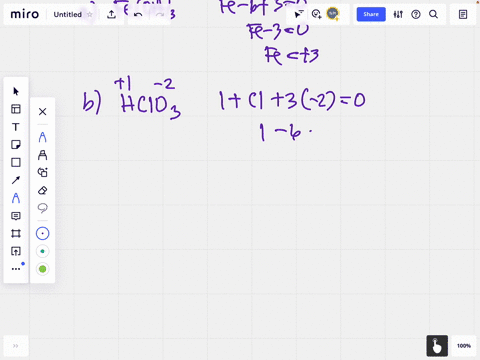 miro Untitled Share
Fe-3=0
Fe=+3
+1 -2
b) HClO3 1+Cl+3(-2)=0
1-6
100%